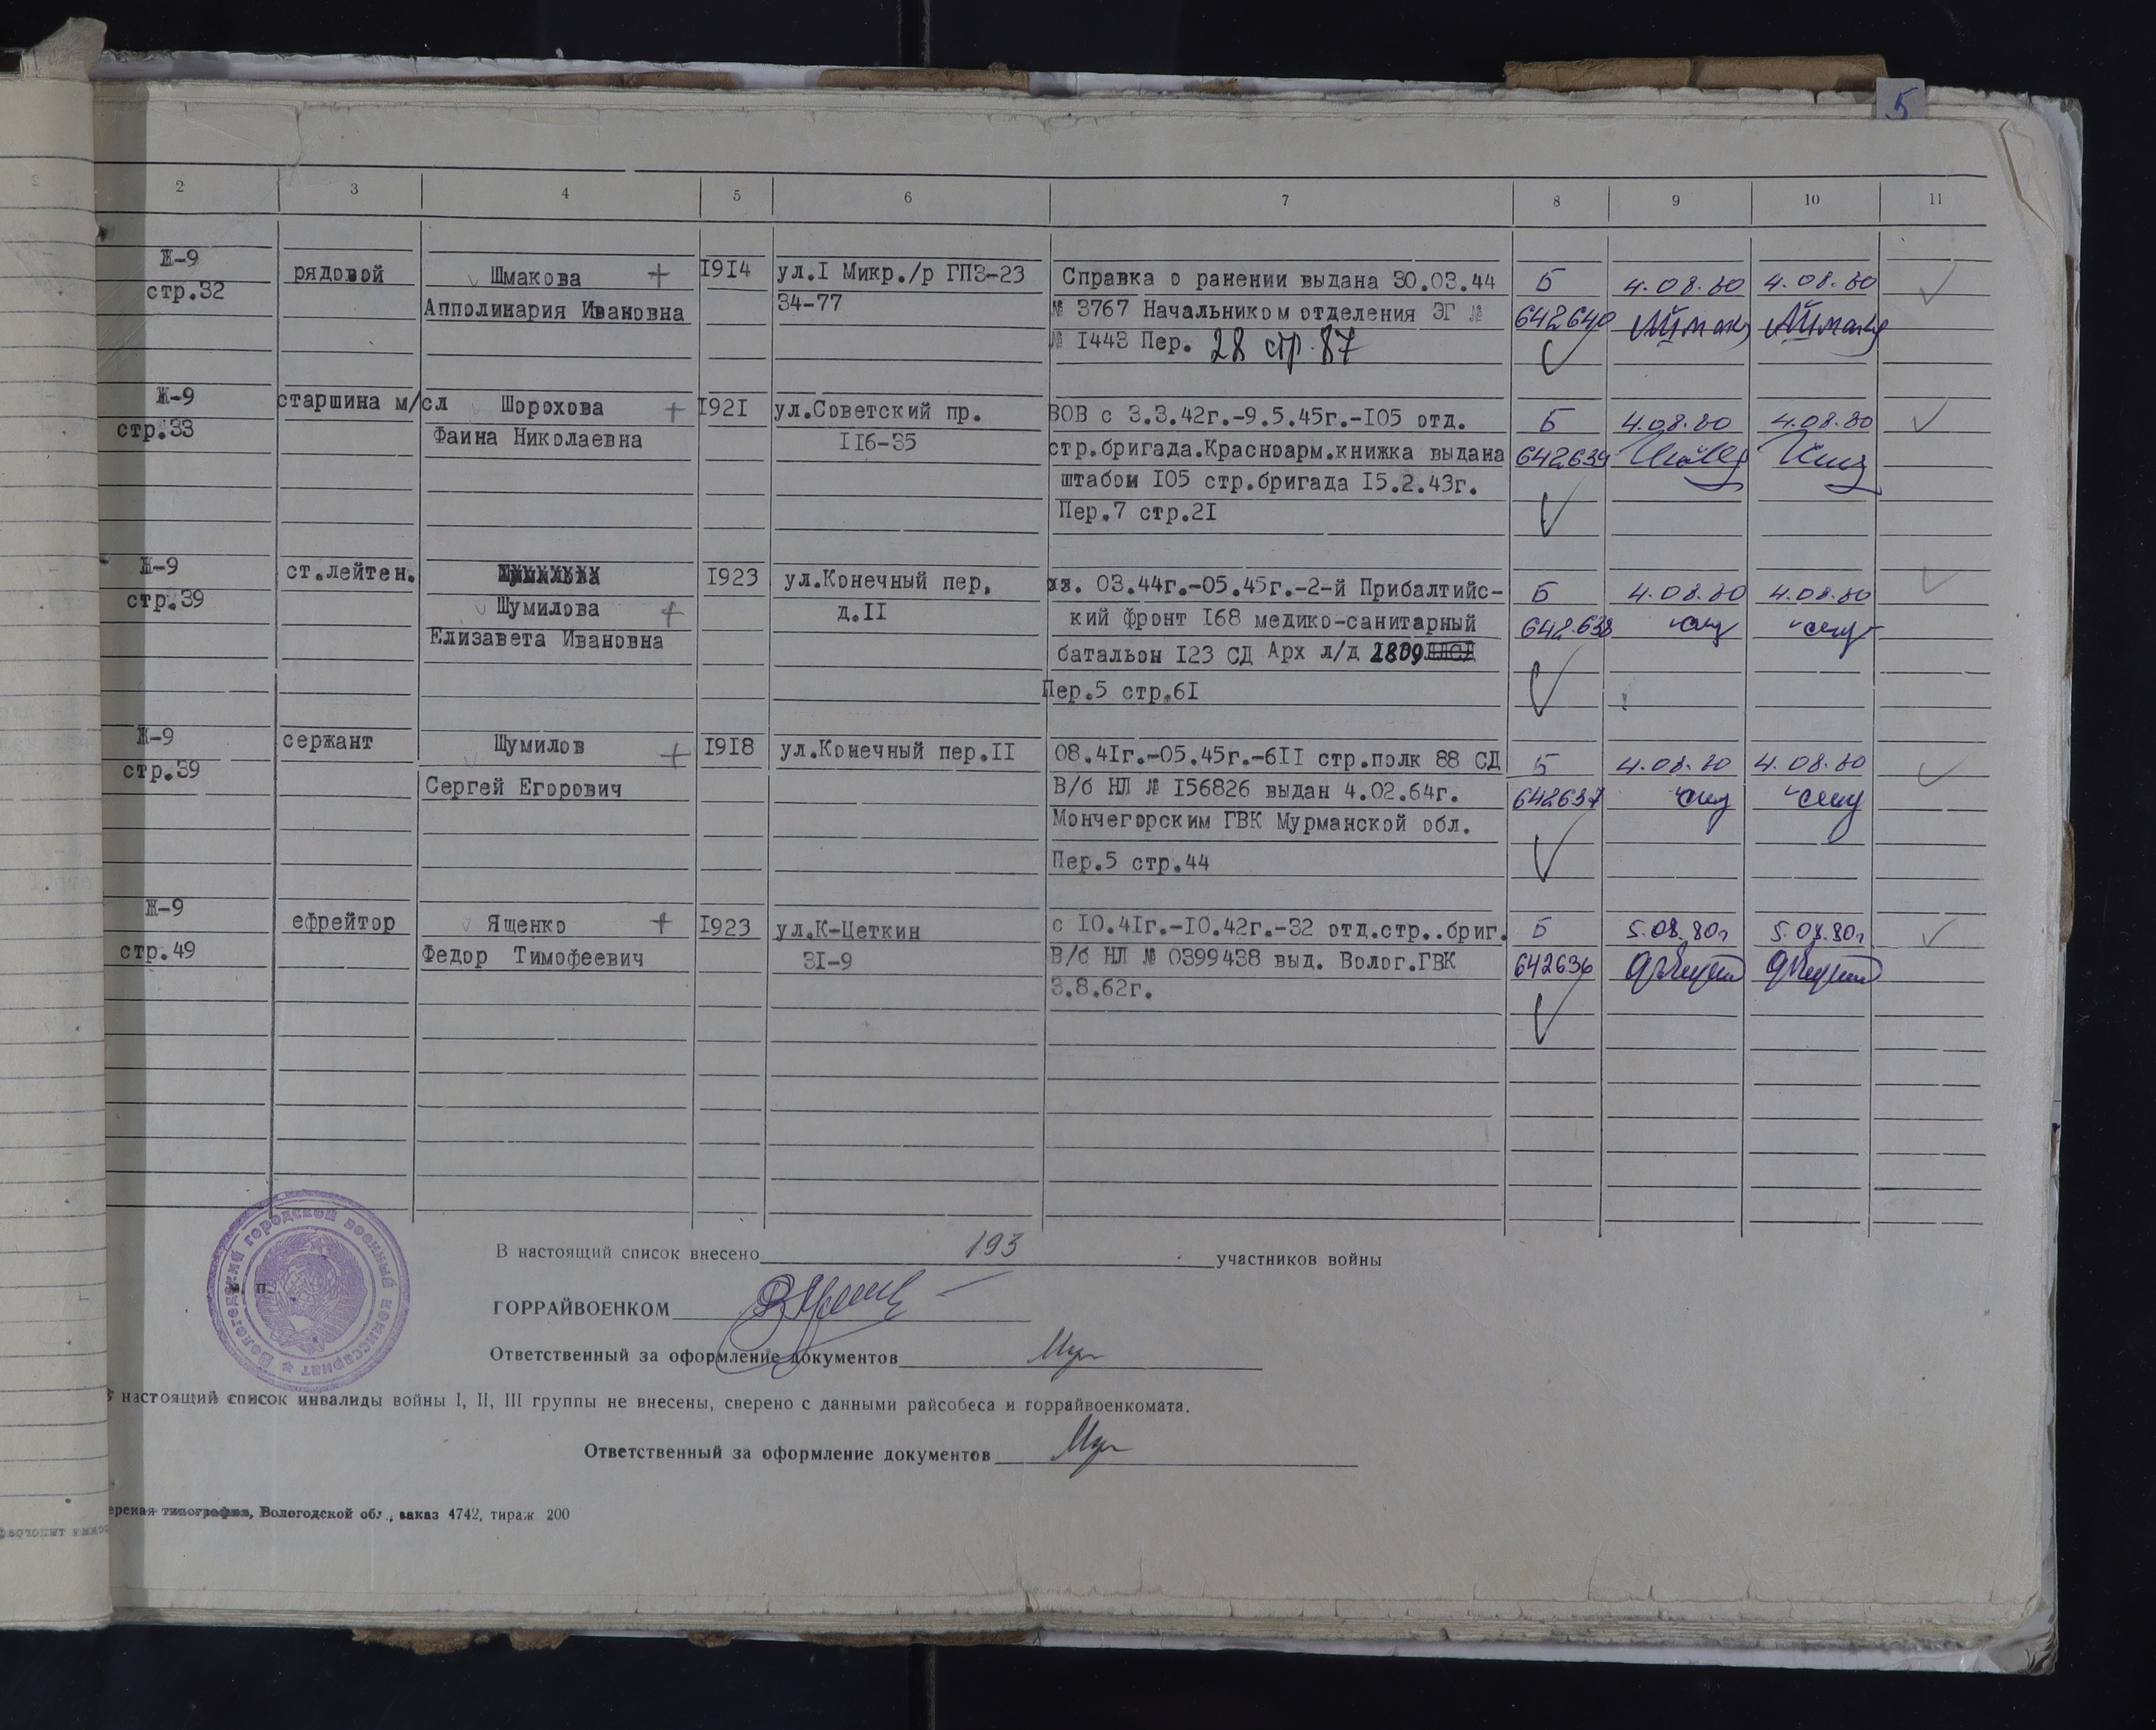 5
2 3 4 5 6 7 8 9 10 11
Ж-9 рядовой Шмакова + 1914 ул.I Микр./р ГПЗ-23 Справка о ранении выдана 30.03.44 Б 4.08.80 4.08.80
стр.32 Апполинария Ивановна 34-77 № 3767 Начальником отделения ЭГ № 642640
№ 1443 Пер. 28 стр. 87
Ж-9 старшина м/сл Шорохова + 1921 ул.Советский пр. ВОВ с 3.3.42г.-9.5.45г.-105 отд. Б 4.08.80 4.08.80
стр.33 Фаина Николаевна 116-35 стр.бригада.Красноарм.книжка выдана 642639
штабом 105 стр.бригада 15.2.43г.
Пер.7 стр.21
Ж-9 ст.лейтен. 1923 ул.Конечный пер. 03.44г.-05.45г.-2-й Прибалтийс- Б 4.08.80 4.08.80
стр.39 Шумилова + д.II кий фронт 168 медико-санитарный 642638
Елизавета Ивановна батальон 123 СД Арх л/д
Пер.5 стр.61
Ж-9 сержант Шумилов + 1918 ул.Конечный пер.II 08.41г.-05.45г.-611 стр.полк 88 СД Б 4.08.80 4.08.80
стр.39 Сергей Егорович В/б НЛ № 156826 выдан 4.02.64г. 642637
Мончегорским ГВК Мурманской обл.
Пер.5 стр.44
Ж-9 ефрейтор Ященко + 1923 ул.К-Цеткин с 10.41г.-10.42г.-32 отд.стр..бриг. Б 5.08.80г 5.08.80г
стр.49 Федор Тимофеевич 31-9 В/б НЛ № 0399438 выд. Волог.ГВК 642636
3.8.62г.
В настоящий список внесено 193 участников войны
п.
Вологодский городской военный комиссариат
ГОРРАЙВОЕНКОМ
Ответственный за оформление документов
настоящий список инвалиды войны I, II, III группы не внесены, сверено с данными райсобеса и горрайвоенкомата.
Ответственный за оформление документов
ерская типография, Вологодской обл., заказ 4742, тираж 200